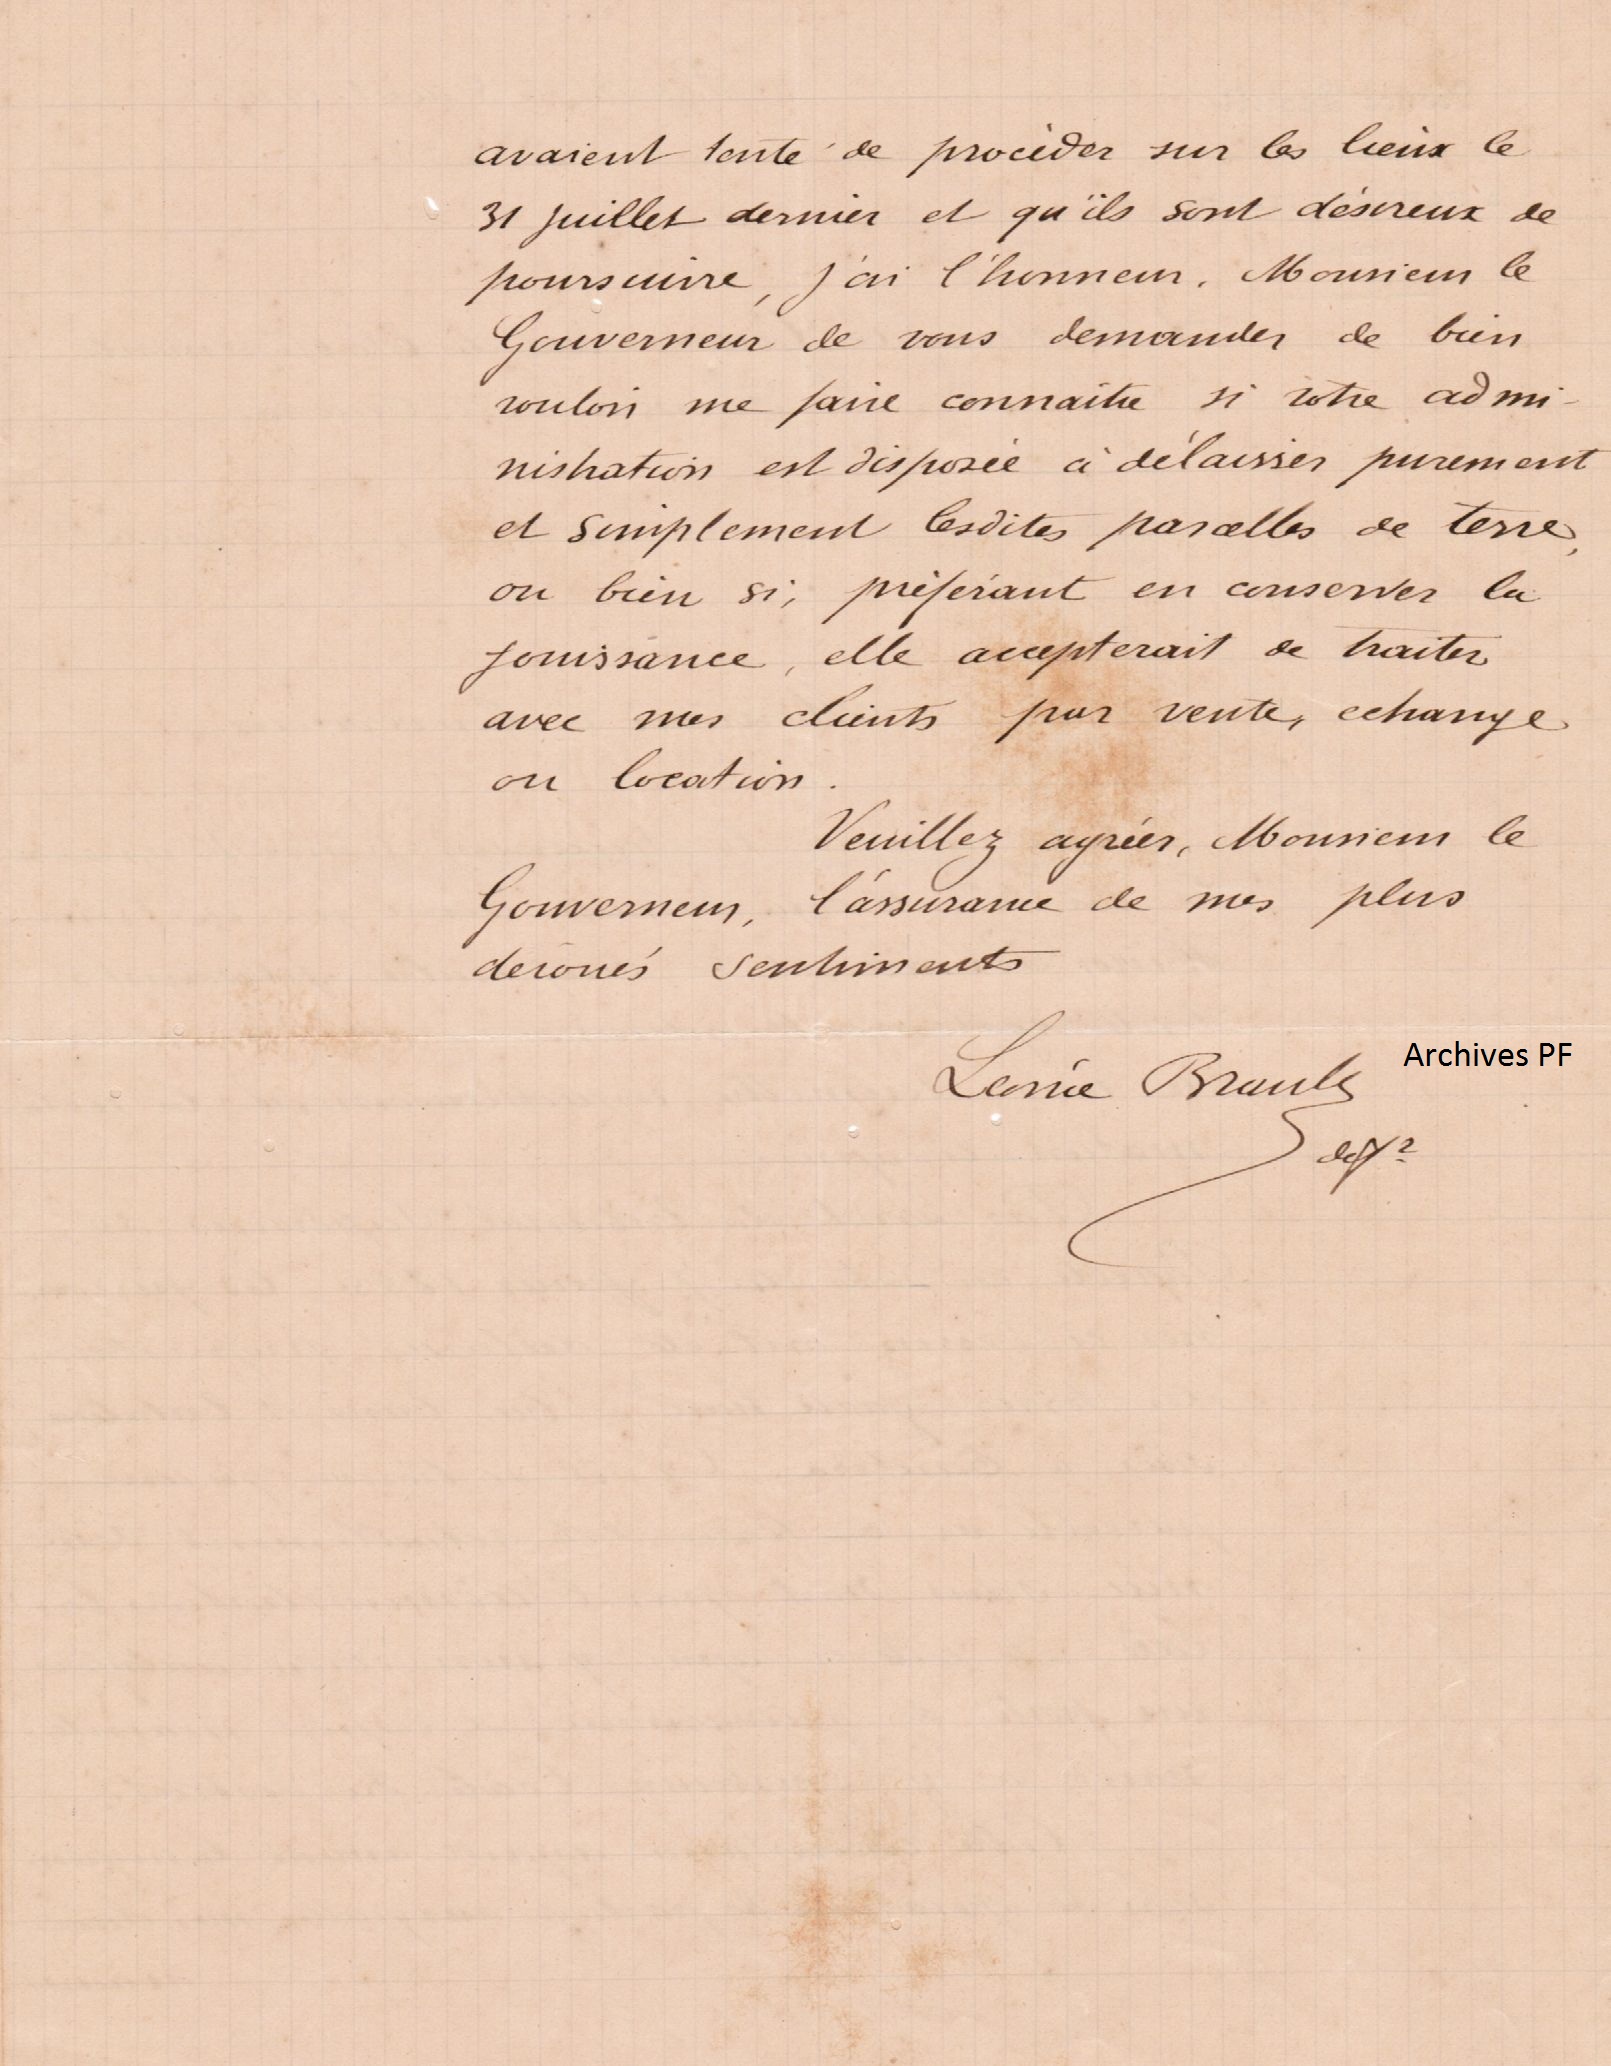 avaient tenté de procéder sur les lieux le
31 juillet dernier et qu'ils sont désireux de
poursuivre, j'ai l'honneur, Monsieur le
Gouverneur de vous demander de bien
vouloir me faire connaitre si votre admi-
nistration est disposée à délaisser purement
et simplement lesdites parcelles de terre,
ou bien si, préférant en conserver la
jouissance, elle accepterait de traiter
avec mes clients par vente, echange
ou location.
Veuillez agréer, Monsieur le
Gouverneur, l'assurance de mes plus
dévoués sentiments
Léonce Brault
Archives PF
defr